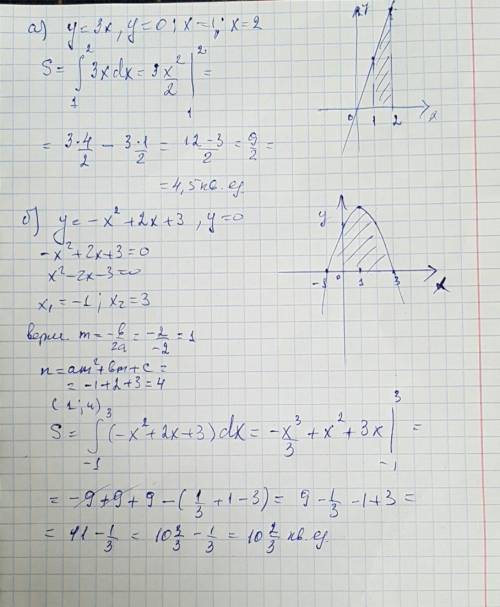 а) y=3x, y=0; x=1; x=2
S = ∫₁² 3x dx = 3x²/2 |₁² =
= 3·4/2 − 3·1/2 = 12−3/2 = 9/2 =
= 4,5 кв. ед.
y
0 1 2 x
б) y = −x² + 2x + 3, y=0
−x² + 2x + 3 = 0
x² − 2x − 3 = 0
x₁ = −1; x₂ = 3
y
−1 0 1 3 x
верш. m = −b/2a = −2/−2 = 1
n = am² + bm + c =
= −1 + 2 + 3 = 4
(1; 4)
S = ∫₋₁³ (−x² + 2x + 3) dx = −x³/3 + x² + 3x |₋₁³ =
= −9 + 9 + 9 − (1/3 + 1 − 3) = 9 − 1/3 − 1 + 3 =
= 11 − 1/3 = 10 3/3 − 1/3 = 10 2/3 кв. ед.